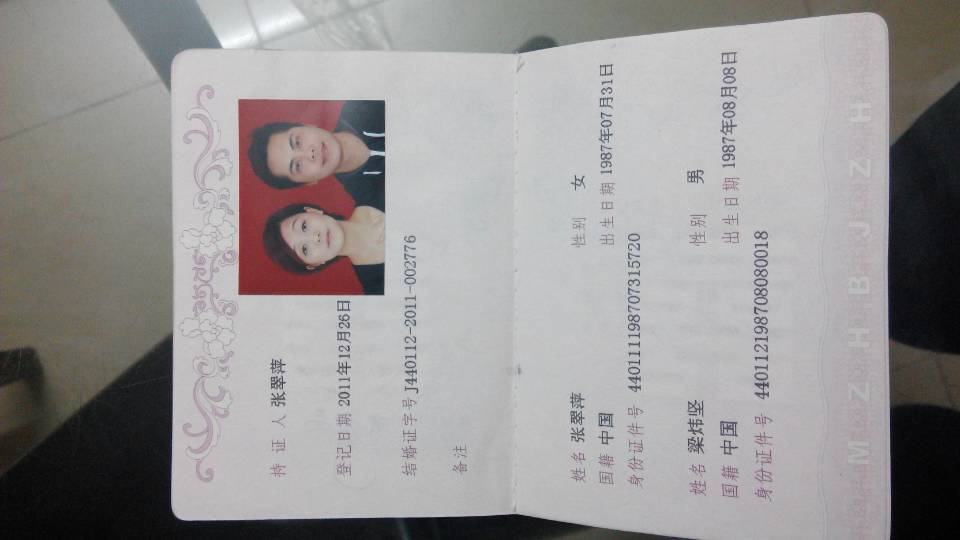 持证人 张翠萍
登记日期 2011年12月26日
结婚证字号 J440112-2011-002776
备注
姓名 张翠萍 性别 女
国籍 中国 出生日期 1987年07月31日
身份证件号 440111198707315720
姓名 梁炜坚 性别 男
国籍 中国 出生日期 1987年08月08日
身份证件号 440112198708080018
M Z H B J Z H